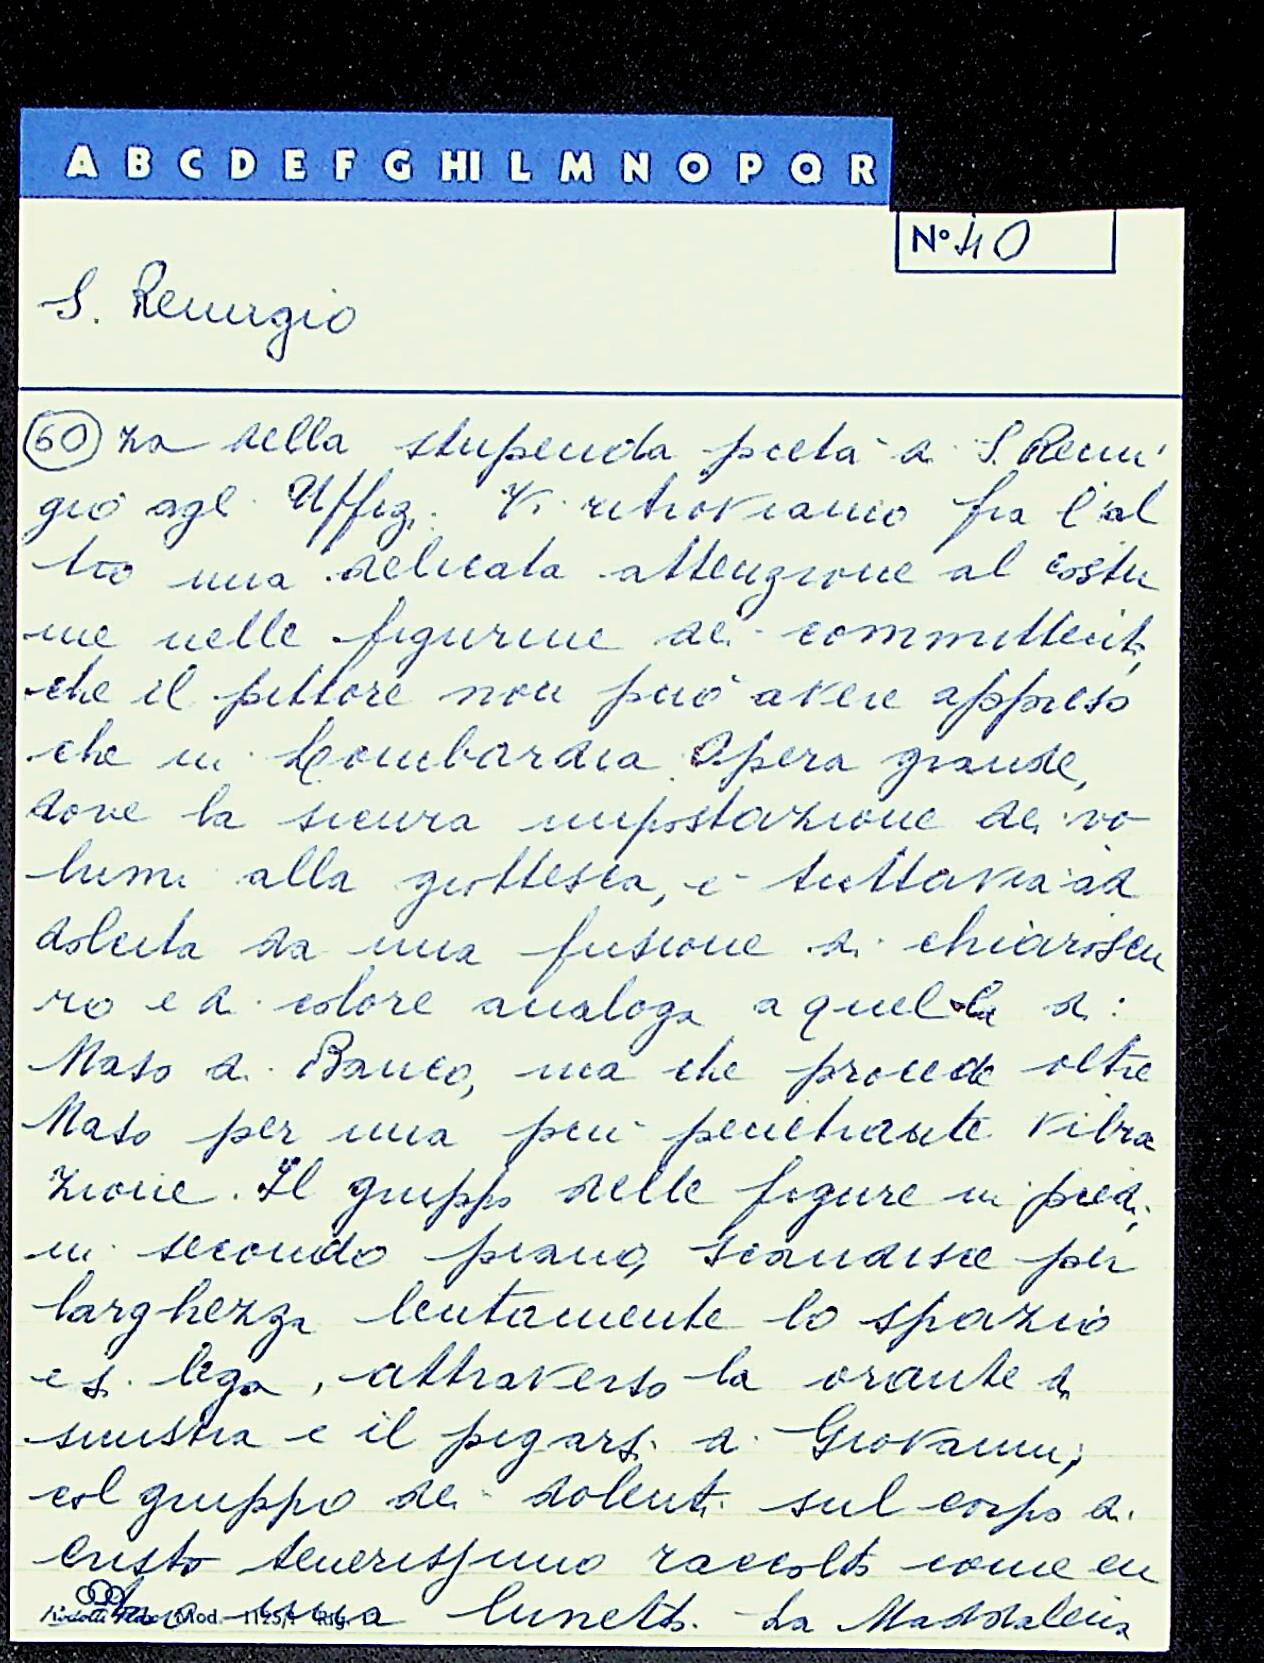 A B C D E F G HI L M N O P Q R
N° 40
S. Remigio
60 za della stupenda pietà di S. Remi
gio agli Uffizi. Vi ritroviamo fra l'al
tro una delicata attenzione al costu
me nelle figurine dei committenti,
che il pittore non può avere appreso
che in Lombardia. Opera grande,
dove la sicura impostazione dei vo
lumi alla giottesca, è tuttavia ad
dolcita da una fusione di chiaroscu
ro e di colore analoga a quella di
Maso di Banco, ma che procede oltre
Maso per una più penetrante vibra
zione. Il gruppo delle figure in piedi,
in secondo piano, scandisce per
larghezza lentamente lo spazio
e si lega, attraverso la orante di
sinistra e il piegarsi di Giovanni,
col gruppo dei dolenti sul corpo di
Cristo tenerissimo raccolto come en
tro una lunetta. La Maddalena
Mod. 1125/1 Rig.